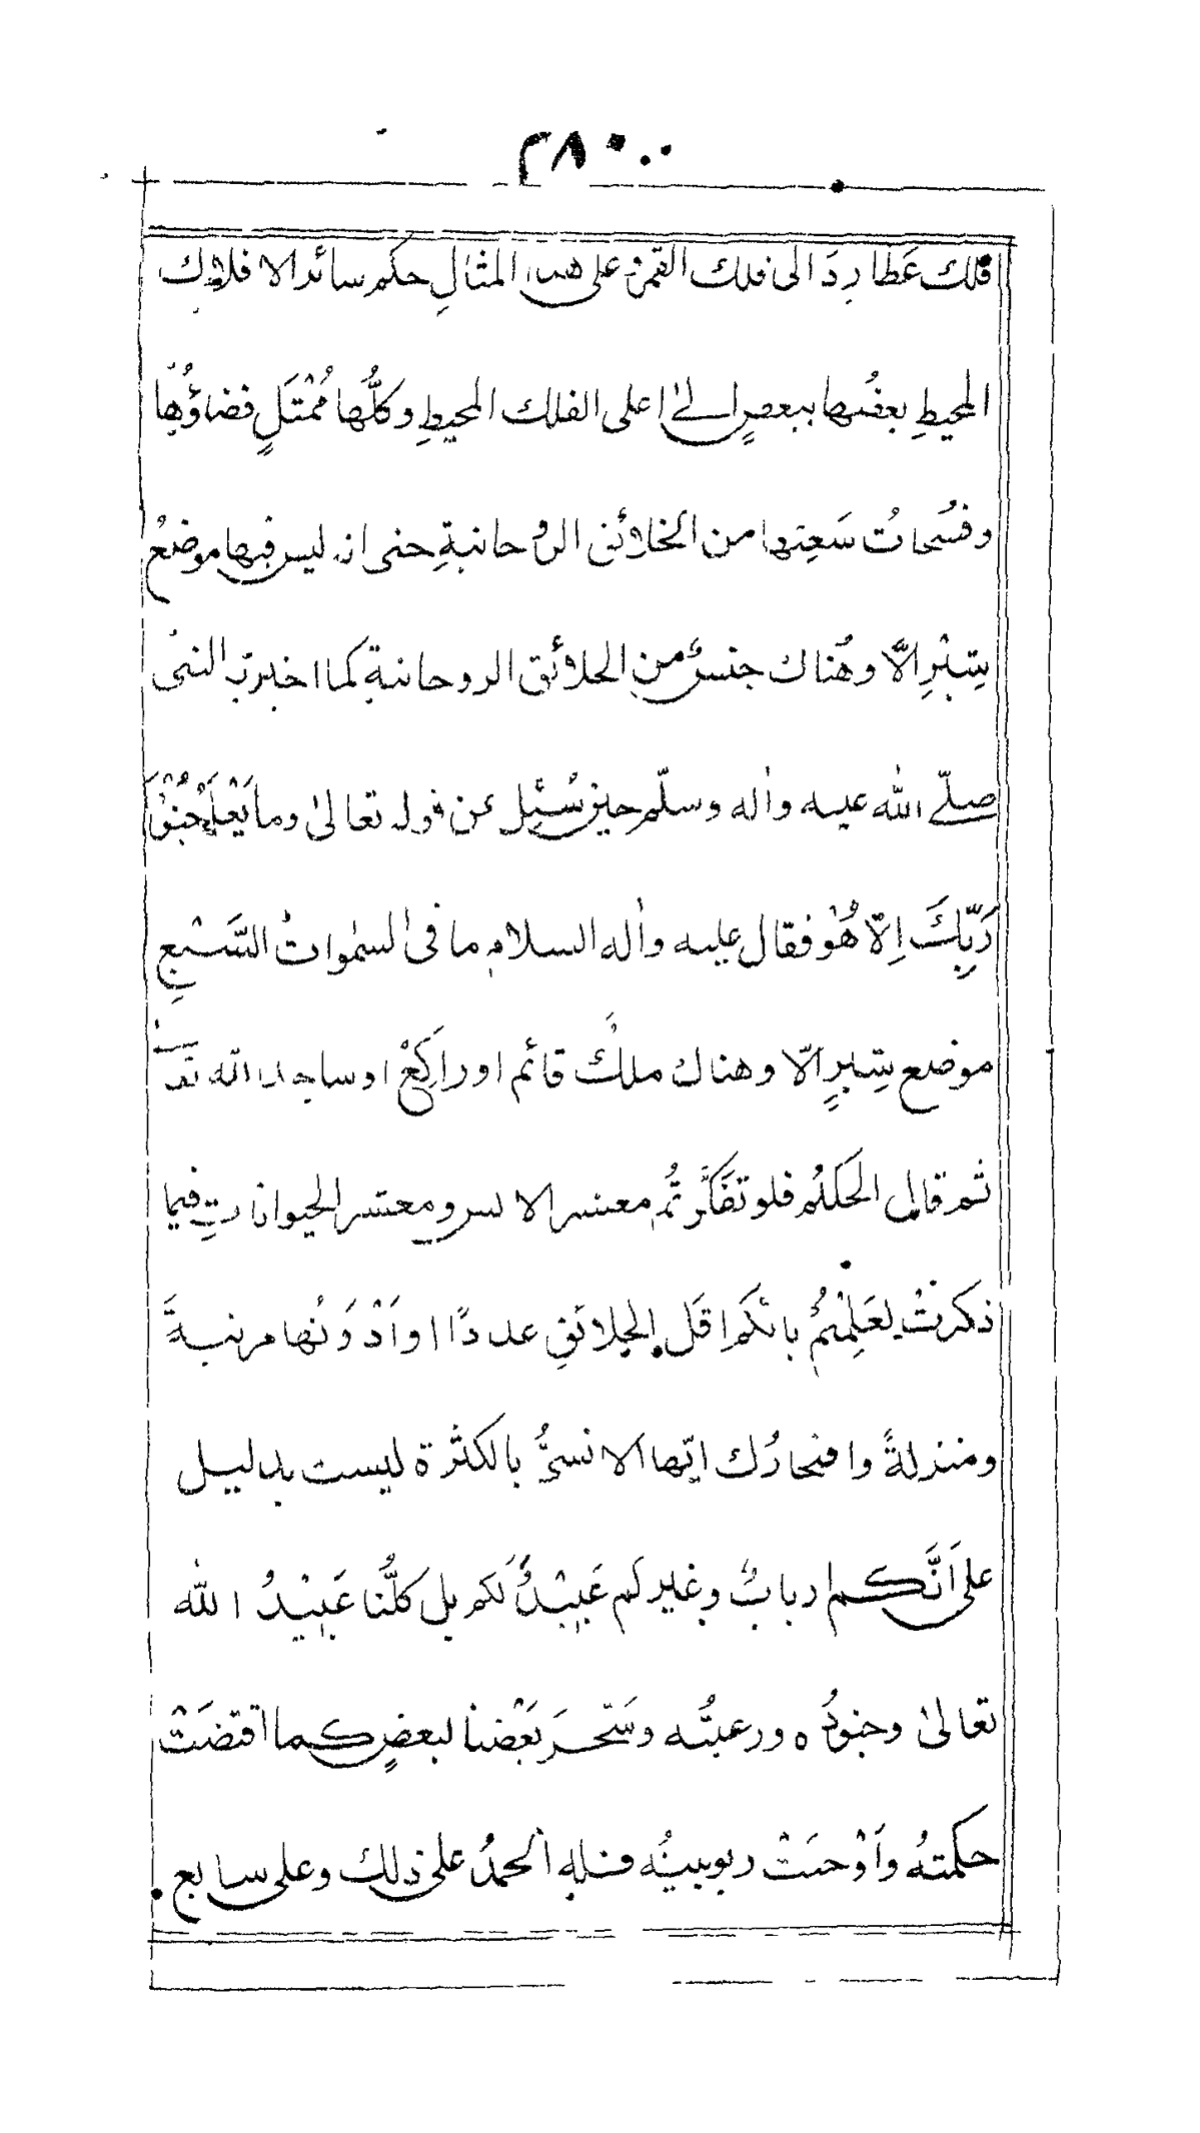 ٢٨٠
فلك عَطاردَ الى فلك القمر على هذا المثالِ حكم سائر الافلاك
المحيطِ بعضُها ببعضٍ الىٰ اعلى الفلك المحيطِ وكلُّها مُمْتَلٍ فضاؤُها
وفسُحاتُ سَعِتها من الخلائق الروحانيةِ حتى انه ليس فيها موضعُ
شِبْرٍ الّا وهُناك جنسٌ من الخلائق الروحانية كما اخبر به النبى
صلّے الله عليه واٰله وسلّم حين سُئِل عن قوله تعالىٰ وما يَعْلَمُ جُنُوْدَ
رَبِّكَ اِلّا هُوْ فقال عليه واٰله السلام ما فى السمٰوات السَّبْعِ
موضع شِبرٍ الّا وهناك ملكٌ قائم او راكِعٌ او ساجد لله تعَا
ثم قال الحكيم فلو تفكَّرتُم معشر الانس ومعشر الحيوانات فيما
ذكرتْ لعَلِمْتُمْ بانكم اقَل الخلائقِ عددًا او اَدْوَنُها مرتبةً
ومنزلةً وافتخارُك ايّها الانسىُّ بالكثرة ليست بدليل
على اَنَّكم اربابٌ وغيركم عَبِيْدٌ لكم بل كلُّنا عَبِيْدُ الله
تعالىٰ وجنودُه ورعيتُّه وسَخّرَ بَعْضنا لبعضٍ كما اقتضَتْ
حكمتهُ واَوْجبَتْ ربوبيتُه فلله الحمدُ على ذلك وعلى سابغ